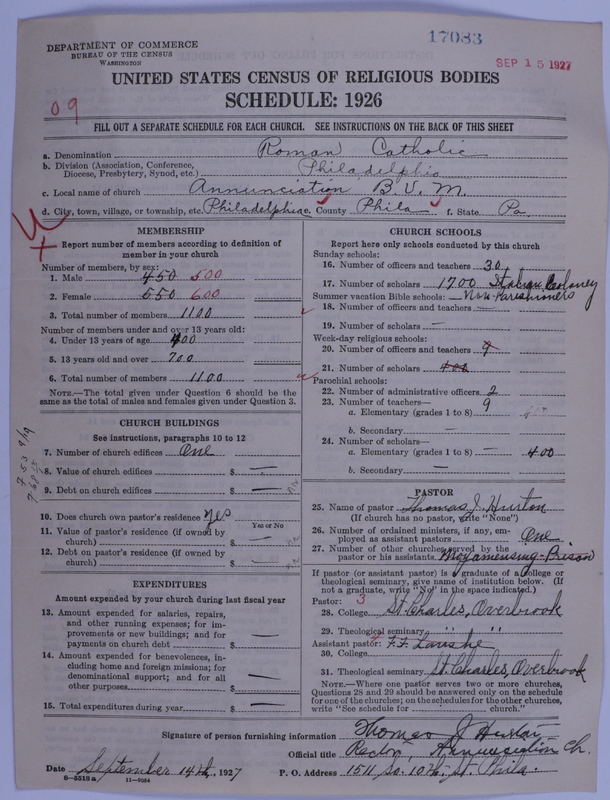 17083
DEPARTMENT OF COMMERCE
BUREAU OF THE CENSUS
WASHINGTON
SEP 15 1927
UNITED STATES CENSUS OF RELIGIOUS BODIES
SCHEDULE: 1926
09
FILL OUT A SEPARATE SCHEDULE FOR EACH CHURCH. SEE INSTRUCTIONS ON THE BACK OF THIS SHEET
a. Denomination Roman Catholic
b. Division (Association, Conference, Diocese, Presbytery, Synod, etc.) Philadelphia
c. Local name of church Annunciation B.V.M.
d. City, town, village, or township, etc. Philadelphia e. County Phila f. State Pa
MEMBERSHIP
Report number of members according to definition of
member in your church
Number of members, by sex:
1. Male 450 500
2. Female 550 600
3. Total number of members 1100
Number of members under and over 13 years old:
4. Under 13 years of age 400
5. 13 years old and over 700
6. Total number of members 1100
NOTE.—The total given under Question 6 should be the
same as the total of males and females given under Question 3.
CHURCH BUILDINGS
See instructions, paragraphs 10 to 12
7. Number of church edifices One
8. Value of church edifices $ —
9. Debt on church edifices $ —
10. Does church own pastor's residence? Yes
Yes or No
11. Value of pastor's residence (if owned by
church) $ —
12. Debt on pastor's residence (if owned by
church) $ —
EXPENDITURES
Amount expended by your church during last fiscal year
13. Amount expended for salaries, repairs,
and other running expenses; for im-
provements or new buildings; and for
payments on church debt $ —
14. Amount expended for benevolences, in-
cluding home and foreign missions; for
denominational support; and for all
other purposes $ —
15. Total expenditures during year $ —
CHURCH SCHOOLS
Report here only schools conducted by this church
Sunday schools:
16. Number of officers and teachers 30
17. Number of scholars 1900 Italian Colony
Summer vacation Bible schools: — Non-Parishioners
18. Number of officers and teachers —
19. Number of scholars —
Week-day religious schools:
20. Number of officers and teachers 9
21. Number of scholars 400
Parochial schools:
22. Number of administrative officers 2
23. Number of teachers— 9
a. Elementary (grades 1 to 8)
b. Secondary —
24. Number of scholars—
a. Elementary (grades 1 to 8) — 400
b. Secondary —
PASTOR
25. Name of pastor Thomas J. Hurton
(If church has no pastor, write "None")
26. Number of ordained ministers, if any, em-
ployed as assistant pastors One
27. Number of other churches served by the
pastor or his assistants Moyamensing-Prison
If pastor (or assistant pastor) is a graduate of a college or
theological seminary, give name of institution below. (If
not a graduate, write "No" in the space indicated.)
Pastor: 3
28. College St. Charles, Overbrook
29. Theological seminary " " "
Assistant pastor: F. F.
30. College
31. Theological seminary St. Charles, Overbrook
NOTE.—Where one pastor serves two or more churches,
Questions 28 and 29 should be answered only on the schedule
for one of the churches; on the schedules for the other churches,
write "See schedule for ______ church."
Signature of person furnishing information Thomas J Hurton
Official title Rector, Annunciation Ch.
Date September 14th, 1927 P. O. Address 1511 So. 10th St. Phila.
8—5518a 11—9064